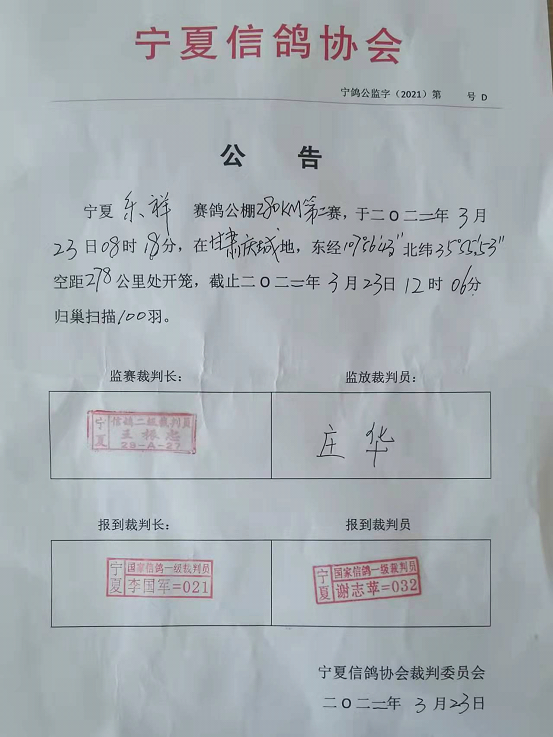 宁夏信鸽协会
宁鸽公监字（2021）第 号 D
公 告
宁夏 东祥 赛鸽公棚280KM第二赛，于二〇二二年 3月
23日08时18分，在甘肃庆城地，东经107°56′43″北纬35°55′53″
空距278公里处开笼，截止二〇二二年 3月23日12时 06分
归巢扫描100羽。
监赛裁判长： 监放裁判员：
宁夏 信鸽二级裁判员
王振忠
29-A-27
庄 华
报到裁判长： 报到裁判员
宁夏 国家信鸽一级裁判员
李国军=021
宁夏 国家信鸽一级裁判员
谢志苹=032
宁夏信鸽协会裁判委员会
二〇二二年 3月23日